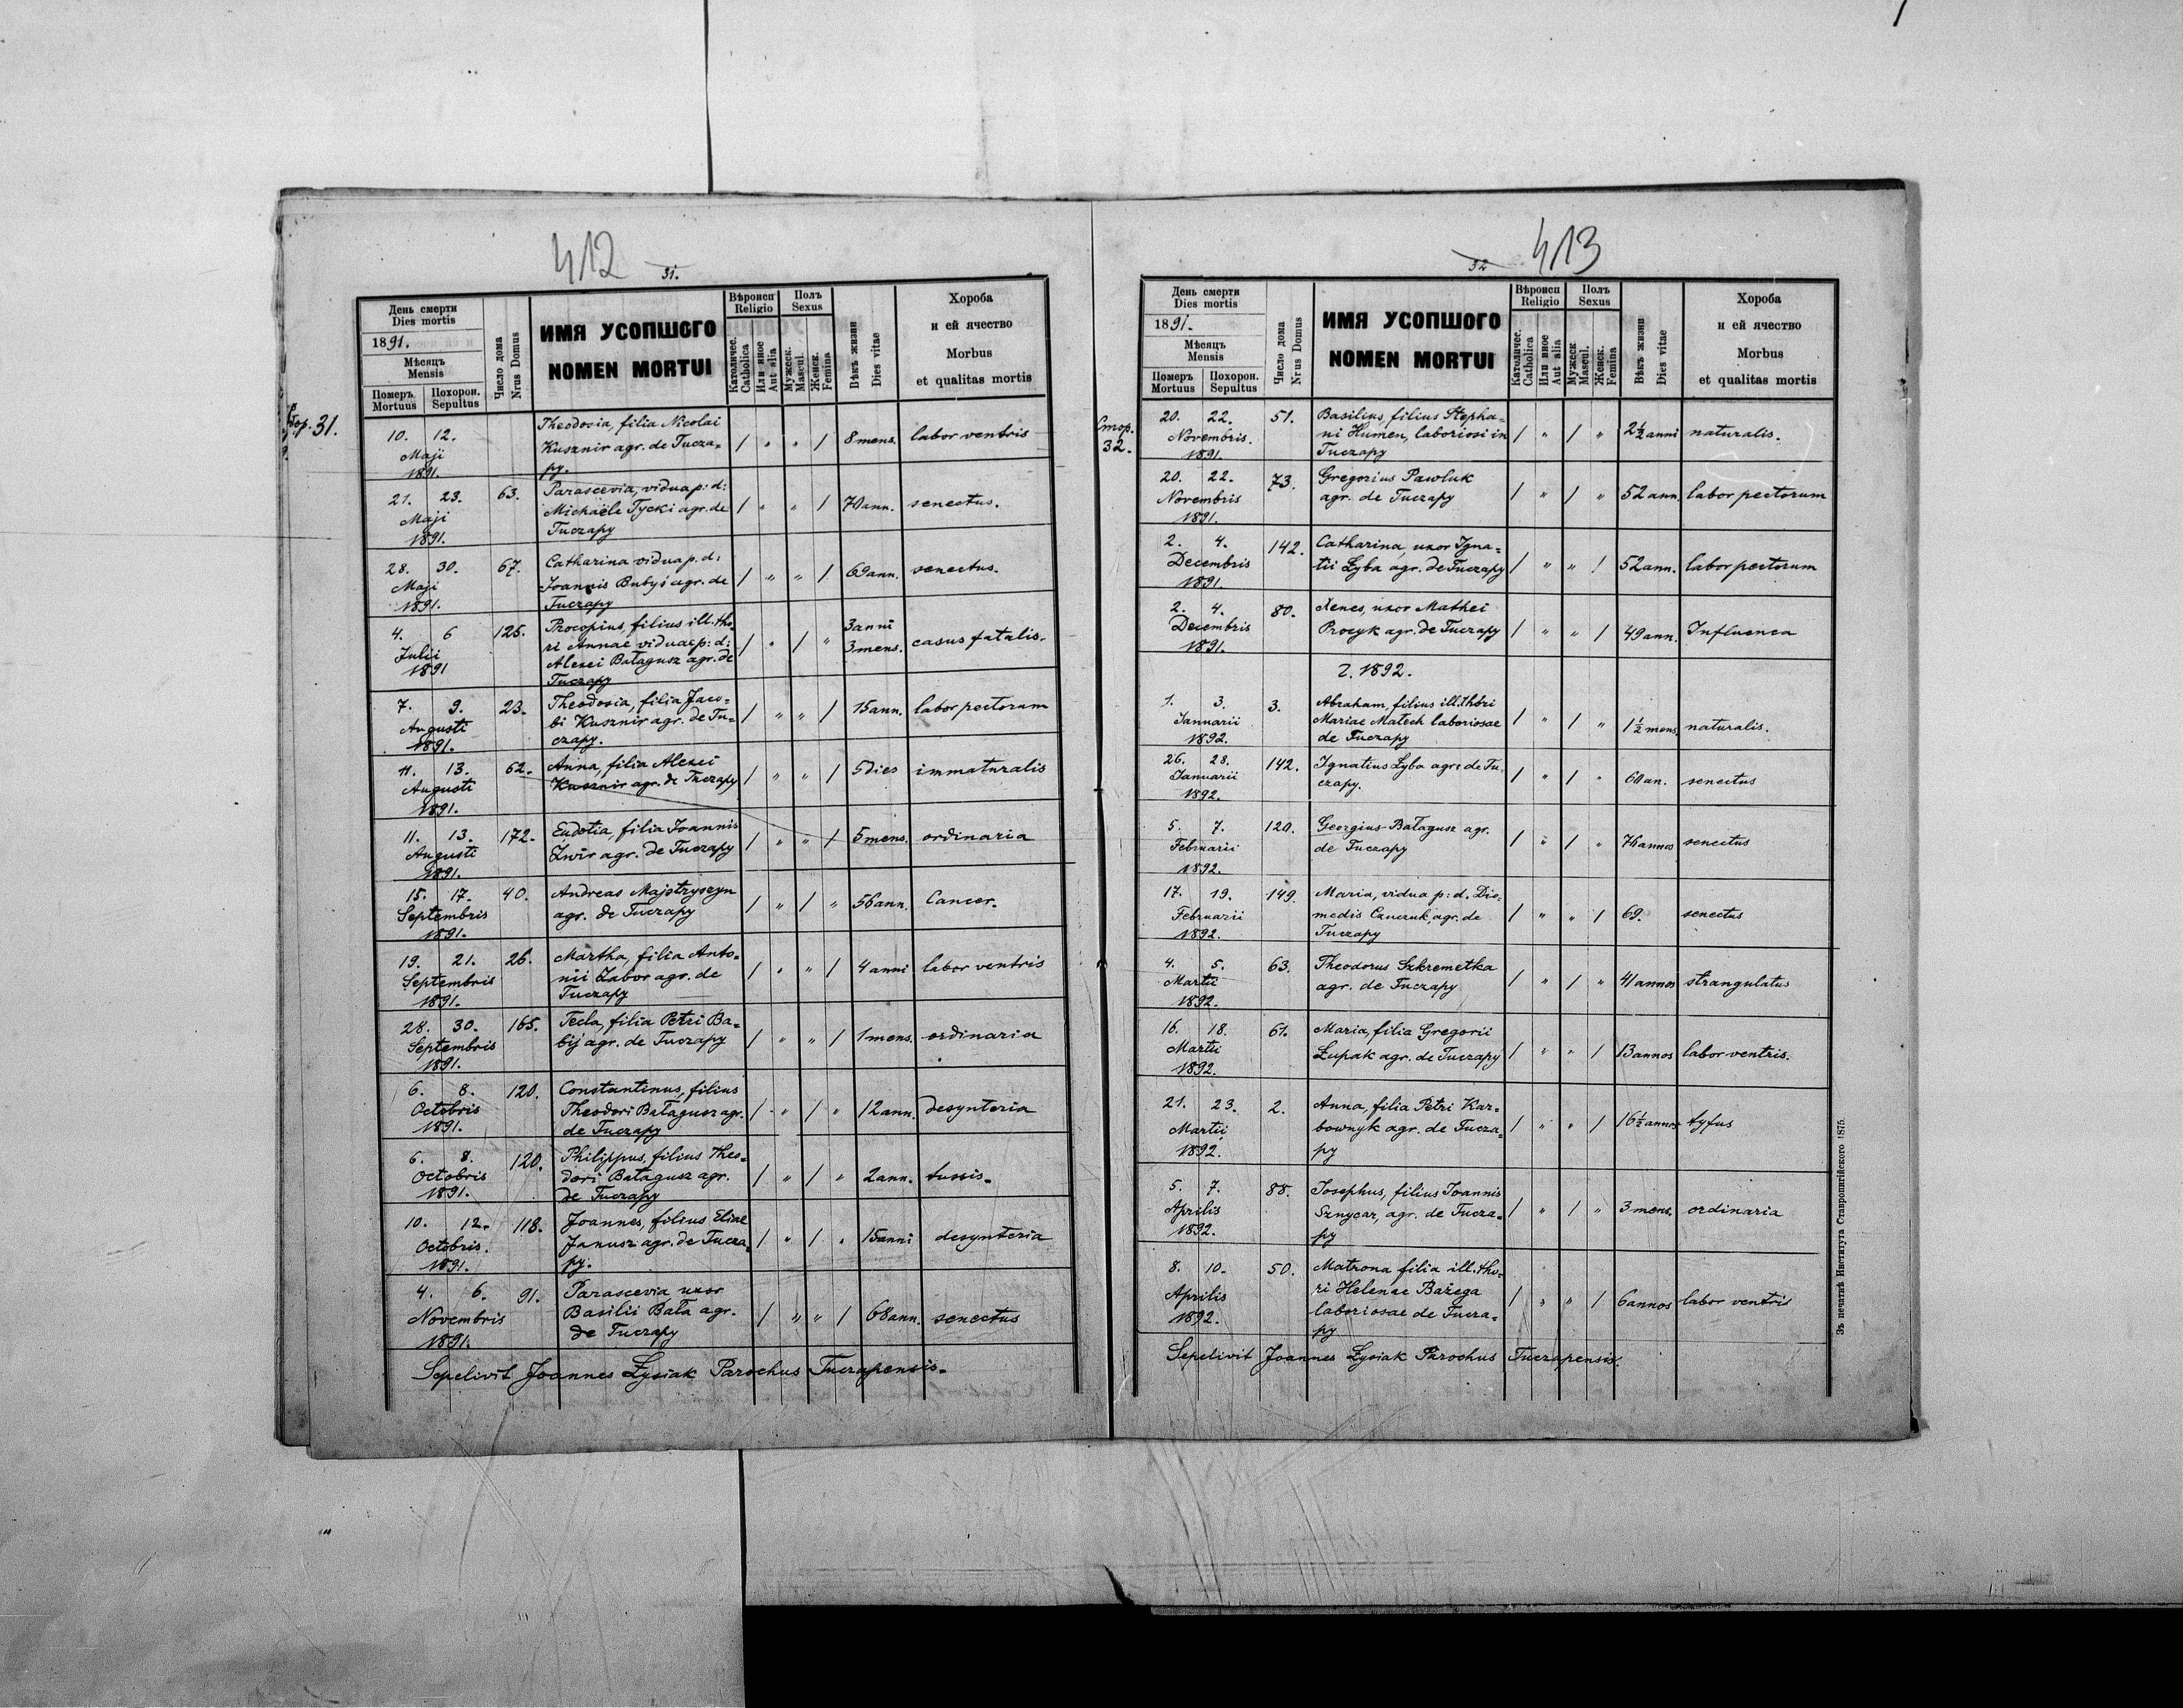 412
31.
День смерти
Dies mortis
1891.
Мѣсяцъ
Mensis
Померъ
Mortuus
Похорон.
Sepultus
Число дома
Nrus Domus
ИМЯ УСОПШОГО
NOMEN MORTUI
Вѣроисп
Religio
Католичес.
Catholica
Или иное
Aut alia
Полъ
Sexus
Мужеск.
Mascul.
Женск.
Femina
Вѣкъ жизни
Dies vitae
Хороба
и ей ячество
Morbus
et qualitas mortis
31.
10. 12.
Maji
1891.
Theodosia, filia Nicolai
Kusznir agr. de Tucza-
py.
/ " " / 8 mens. labor ventris
21. 23. 63.
Maji
1891.
Parascevia, vidua p: d:
Michaële Tycki agr. de
Tuczapy
/ " " / 70 ann. senectus.
28. 30. 67.
Maji
1891.
Catharina vidua p. d:
Joannis Bubys agr. de
Tuczapy
/ " " / 69 ann. senectus.
4. 6 125.
Julii
1891
Procopius, filius ill. tho-
ri Annae viduae p: d:
Alexei Bałagusz agr. de
Tuczapy
/ " / " 3 anni
3 mens. casus fatalis.
7. 9. 23.
Augusti
1891.
Theodosia, filia Jaco-
bi Kusznir agr. de Tu-
czapy.
/ " " / 15 ann. labor pectorum
11. 13. 62.
Augusti
1891.
Anna, filia Alexei
Kusznir agr. de Tuczapy
/ " " / 5 dies immaturalis
11. 13. 172.
Augusti
1891.
Eudotia, filia Joannis
Zwir agr. de Tuczapy
/ " " / 5 mens. ordinaria
15. 17. 40.
Septembris
1891.
Andreas Majstryszyn
agr. de Tuczapy
/ " / " 56 ann. Cancer.
19. 21. 26.
Septembris
1891.
Martha, filia Anto-
nii Zabor agr. de
Tuczapy
/ " " / 4 anni labor ventris
28. 30. 165.
Septembris
1891.
Tecla, filia Petri Ba-
bij agr. de Tuczapy
/ " " / 1 mens. ordinaria
6. 8. 120.
Octobris
1891.
Constantinus, filius
Theodori Bałagusz agr.
de Tuczapy
/ " / " 12 ann. desynteria
6. 8. 120.
Octobris
1891.
Philippus, filius Theo-
dori Bałagusz agr.
de Tuczapy
/ " / " 2 ann. tussis.
10. 12. 118.
Octobris.
1891.
Joannes, filius Eliae
Janusz agr. de Tucza-
py.
/ " / " 15 anni desynteria
4. 6. 91.
Novembris
1891.
Parascevia uxor
Basilii Bała agr.
de Tuczapy
/ " " / 68 ann. senectus
Sepelivit Joannes Łysiak Parochus Tuczapensis.
32 413
День смерти
Dies mortis
1891.
Мѣсяцъ
Mensis
Померъ
Mortuus
Похорон.
Sepultus
Число дома
Nrus Domus
ИМЯ УСОПШОГО
NOMEN MORTUI
Вѣроисп
Religio
Католичес.
Catholica
Или иное
Aut alia
Полъ
Sexus
Мужеск
Mascul.
Женск.
Femina
Вѣкъ жизни
Dies vitae
Хороба
и ей ячество
Morbus
et qualitas mortis
Стор.
32.
20. 22. 51.
Novembris.
1891.
Basilius, filius Stepha-
ni Humen, laboriosi in
Tuczapy
/ " / " 2½ anni naturalis.
20. 22. 73.
Novembris
1891.
Gregorius Pawluk
agr. de Tuczapy
/ " / " 52 ann. labor pectorum
2. 4. 142.
Decembris
1891.
Catharina, uxor Igna-
tii Łyba agr. de Tuczapy
/ " " / 52 ann. labor pectorum
2. 4. 80.
Decembris
1891.
Xenes, uxor Mathei
Procyk agr. de Tuczapy
/ " " / 49 ann. Influenca
2. 1892.
1. 3. 3.
Januarii
1892.
Abraham, filius ill. thori
Mariae Matech laboriosae
de Tuczapy
/ " / " 1½ mens. naturalis.
26. 28. 142.
Januarii
1892.
Ignatius Łyba agr. de Tu-
czapy.
/ " / " 60 an. senectus
5. 7. 120.
Februarii
1892.
Georgius Bałagusz agr.
de Tuczapy
/ " / " 76 annos senectus
17. 19. 149.
Februarii
1892.
Maria, vidua p: d. Dio-
medis Cauczuk, agr. de
Tuczapy
/ " " / 69. senectus
4. 5. 63.
Martii
1892.
Theodorus Szkremetka
agr. de Tuczapy
/ " / " 41 annos strangulatus
16. 18. 61.
Martii
1892.
Maria, filia Gregorii
Łupak agr. de Tuczapy
/ " " / 13 annos labor ventris.
21. 23. 2.
Martii
1892.
Anna, filia Petri Kar-
bownyk agr. de Tucza-
py
/ " " / 16½ annos tyfus
5. 7. 88.
Aprilis
1892.
Josephus, filius Joannis
Sznycar, agr. de Tucza-
py
/ " / " 3 mens. ordinaria
8. 10. 50.
Aprilis
1892.
Matrona filia ill. tho-
ri Helenae Bażega
laboriosae de Tucza-
py
/ " " / 6 annos labor ventris
Sepelivit Joannes Łysiak Parochus Tuczapensis.
Зъ печатнѣ Института Ставропигійского 1875.